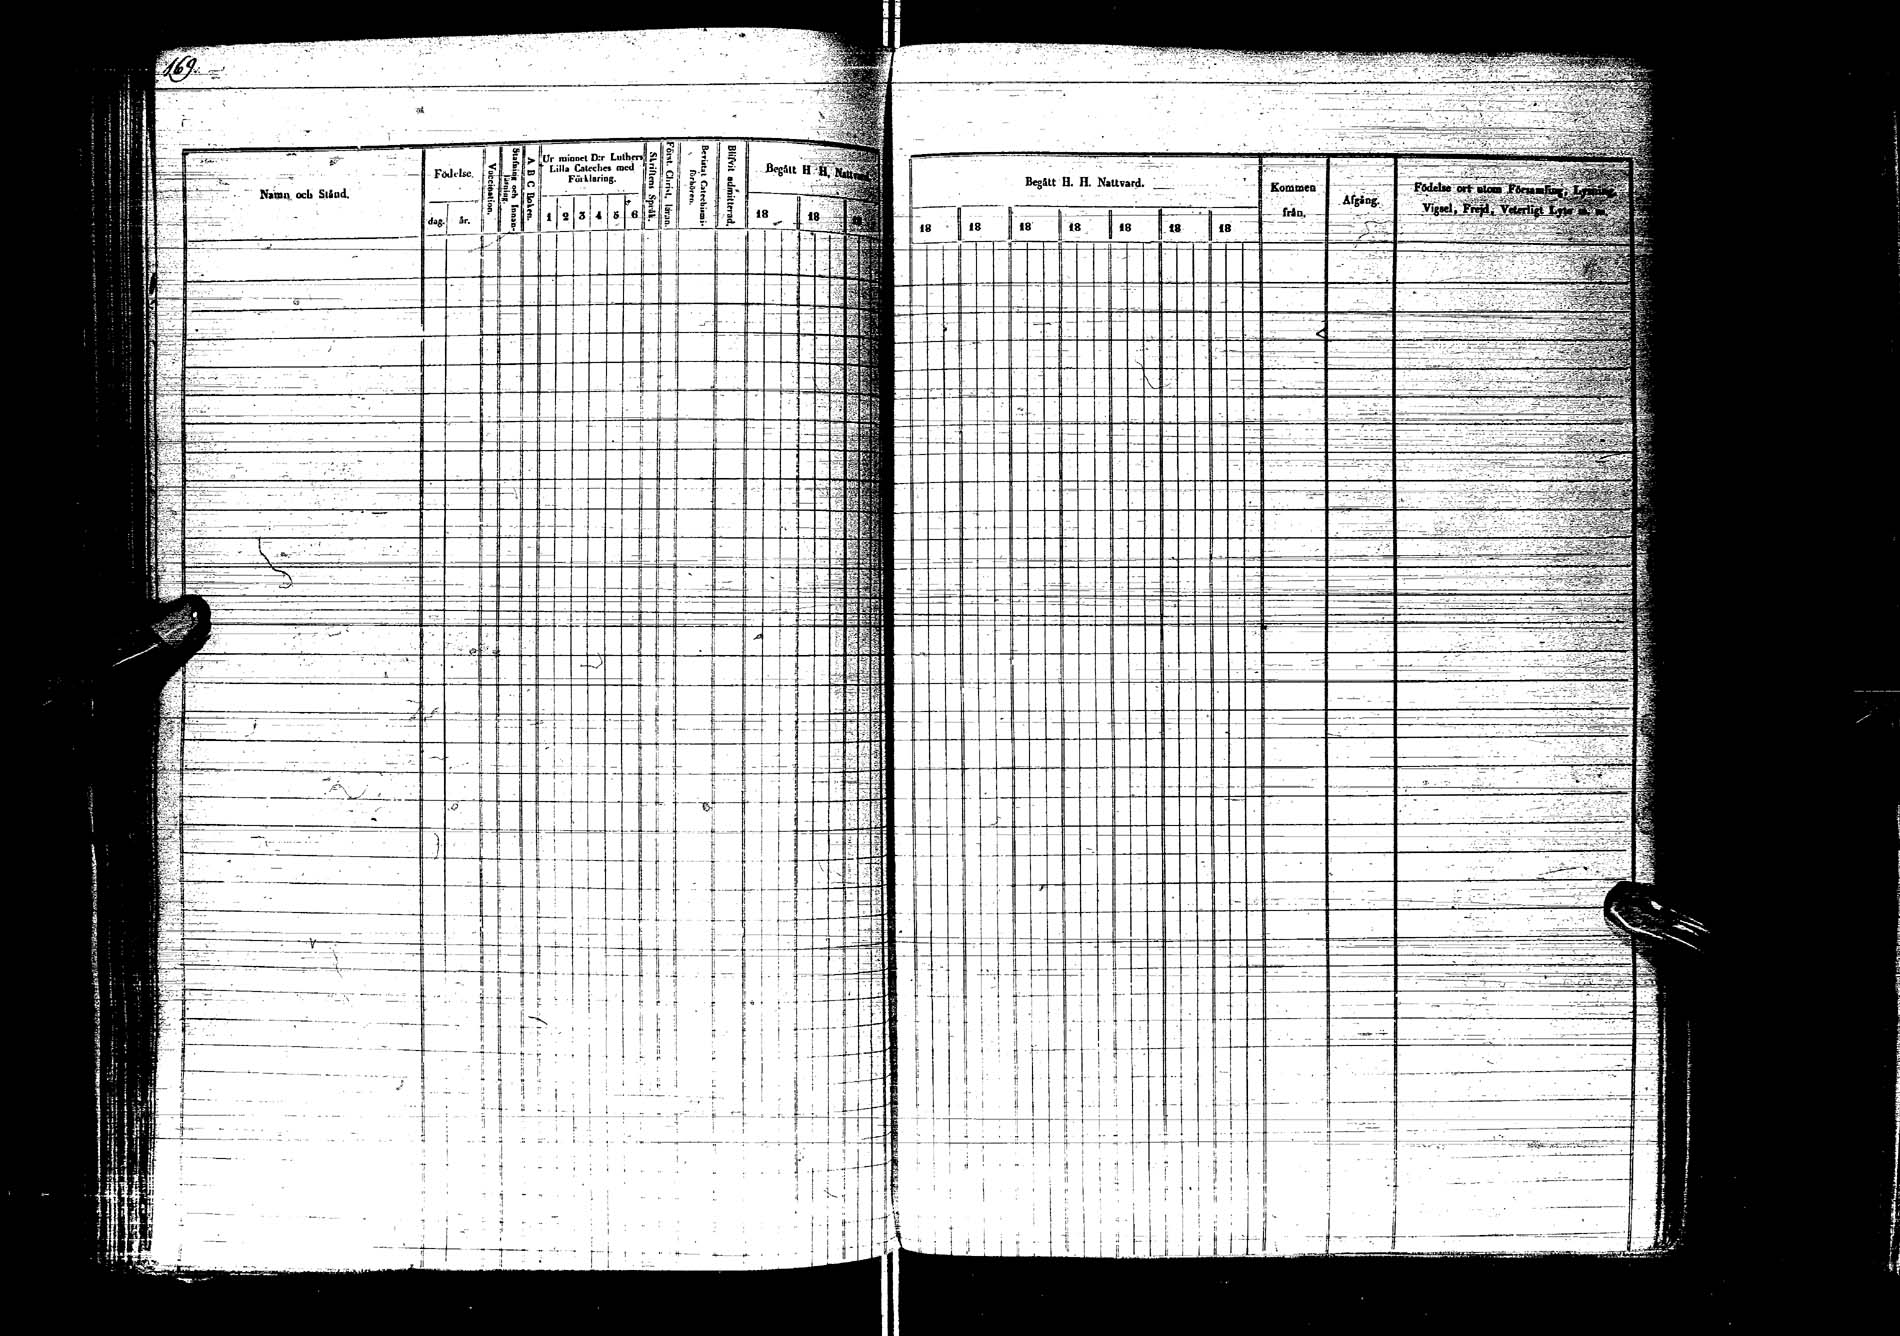 169.
Namn och Stånd.
Födelse.
dag. år.
Vaccination.
Stafning och Innan-
läsning.
A B C Boken.
Ur minnet D:r Luthers
Lilla Cateches med
Förklaring.
1 2 3 4 5 6
Skriftens Språk.
Först. Christ. läran.
Bevistat Catechismi-
förhören.
Blifvit admitterad.
Begått H. H. Nattvard.
18 18 18
Begått H. H. Nattvard.
18 18 18 18 18 18 18
Kommen
från.
Afgång.
Födelse ort utom Församling, Lysning,
Vigsel, Frejd, Veterligt Lyte m. m.